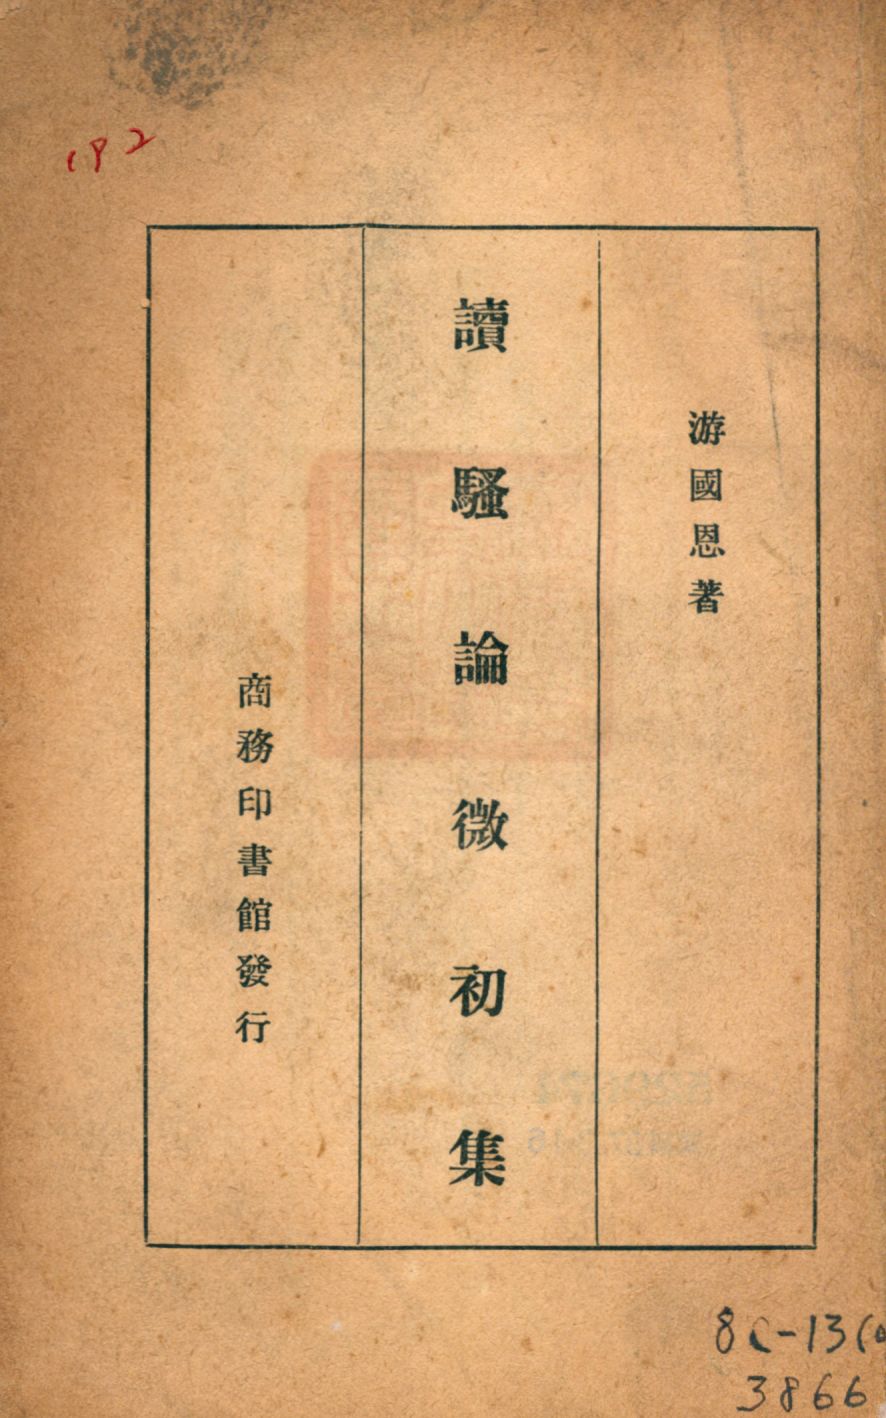 游國恩著
讀騷論微初集
商務印書館發行
192
3866